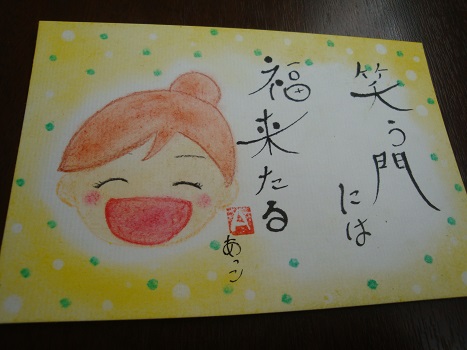 笑う門
には
福来たる
A
あっこ